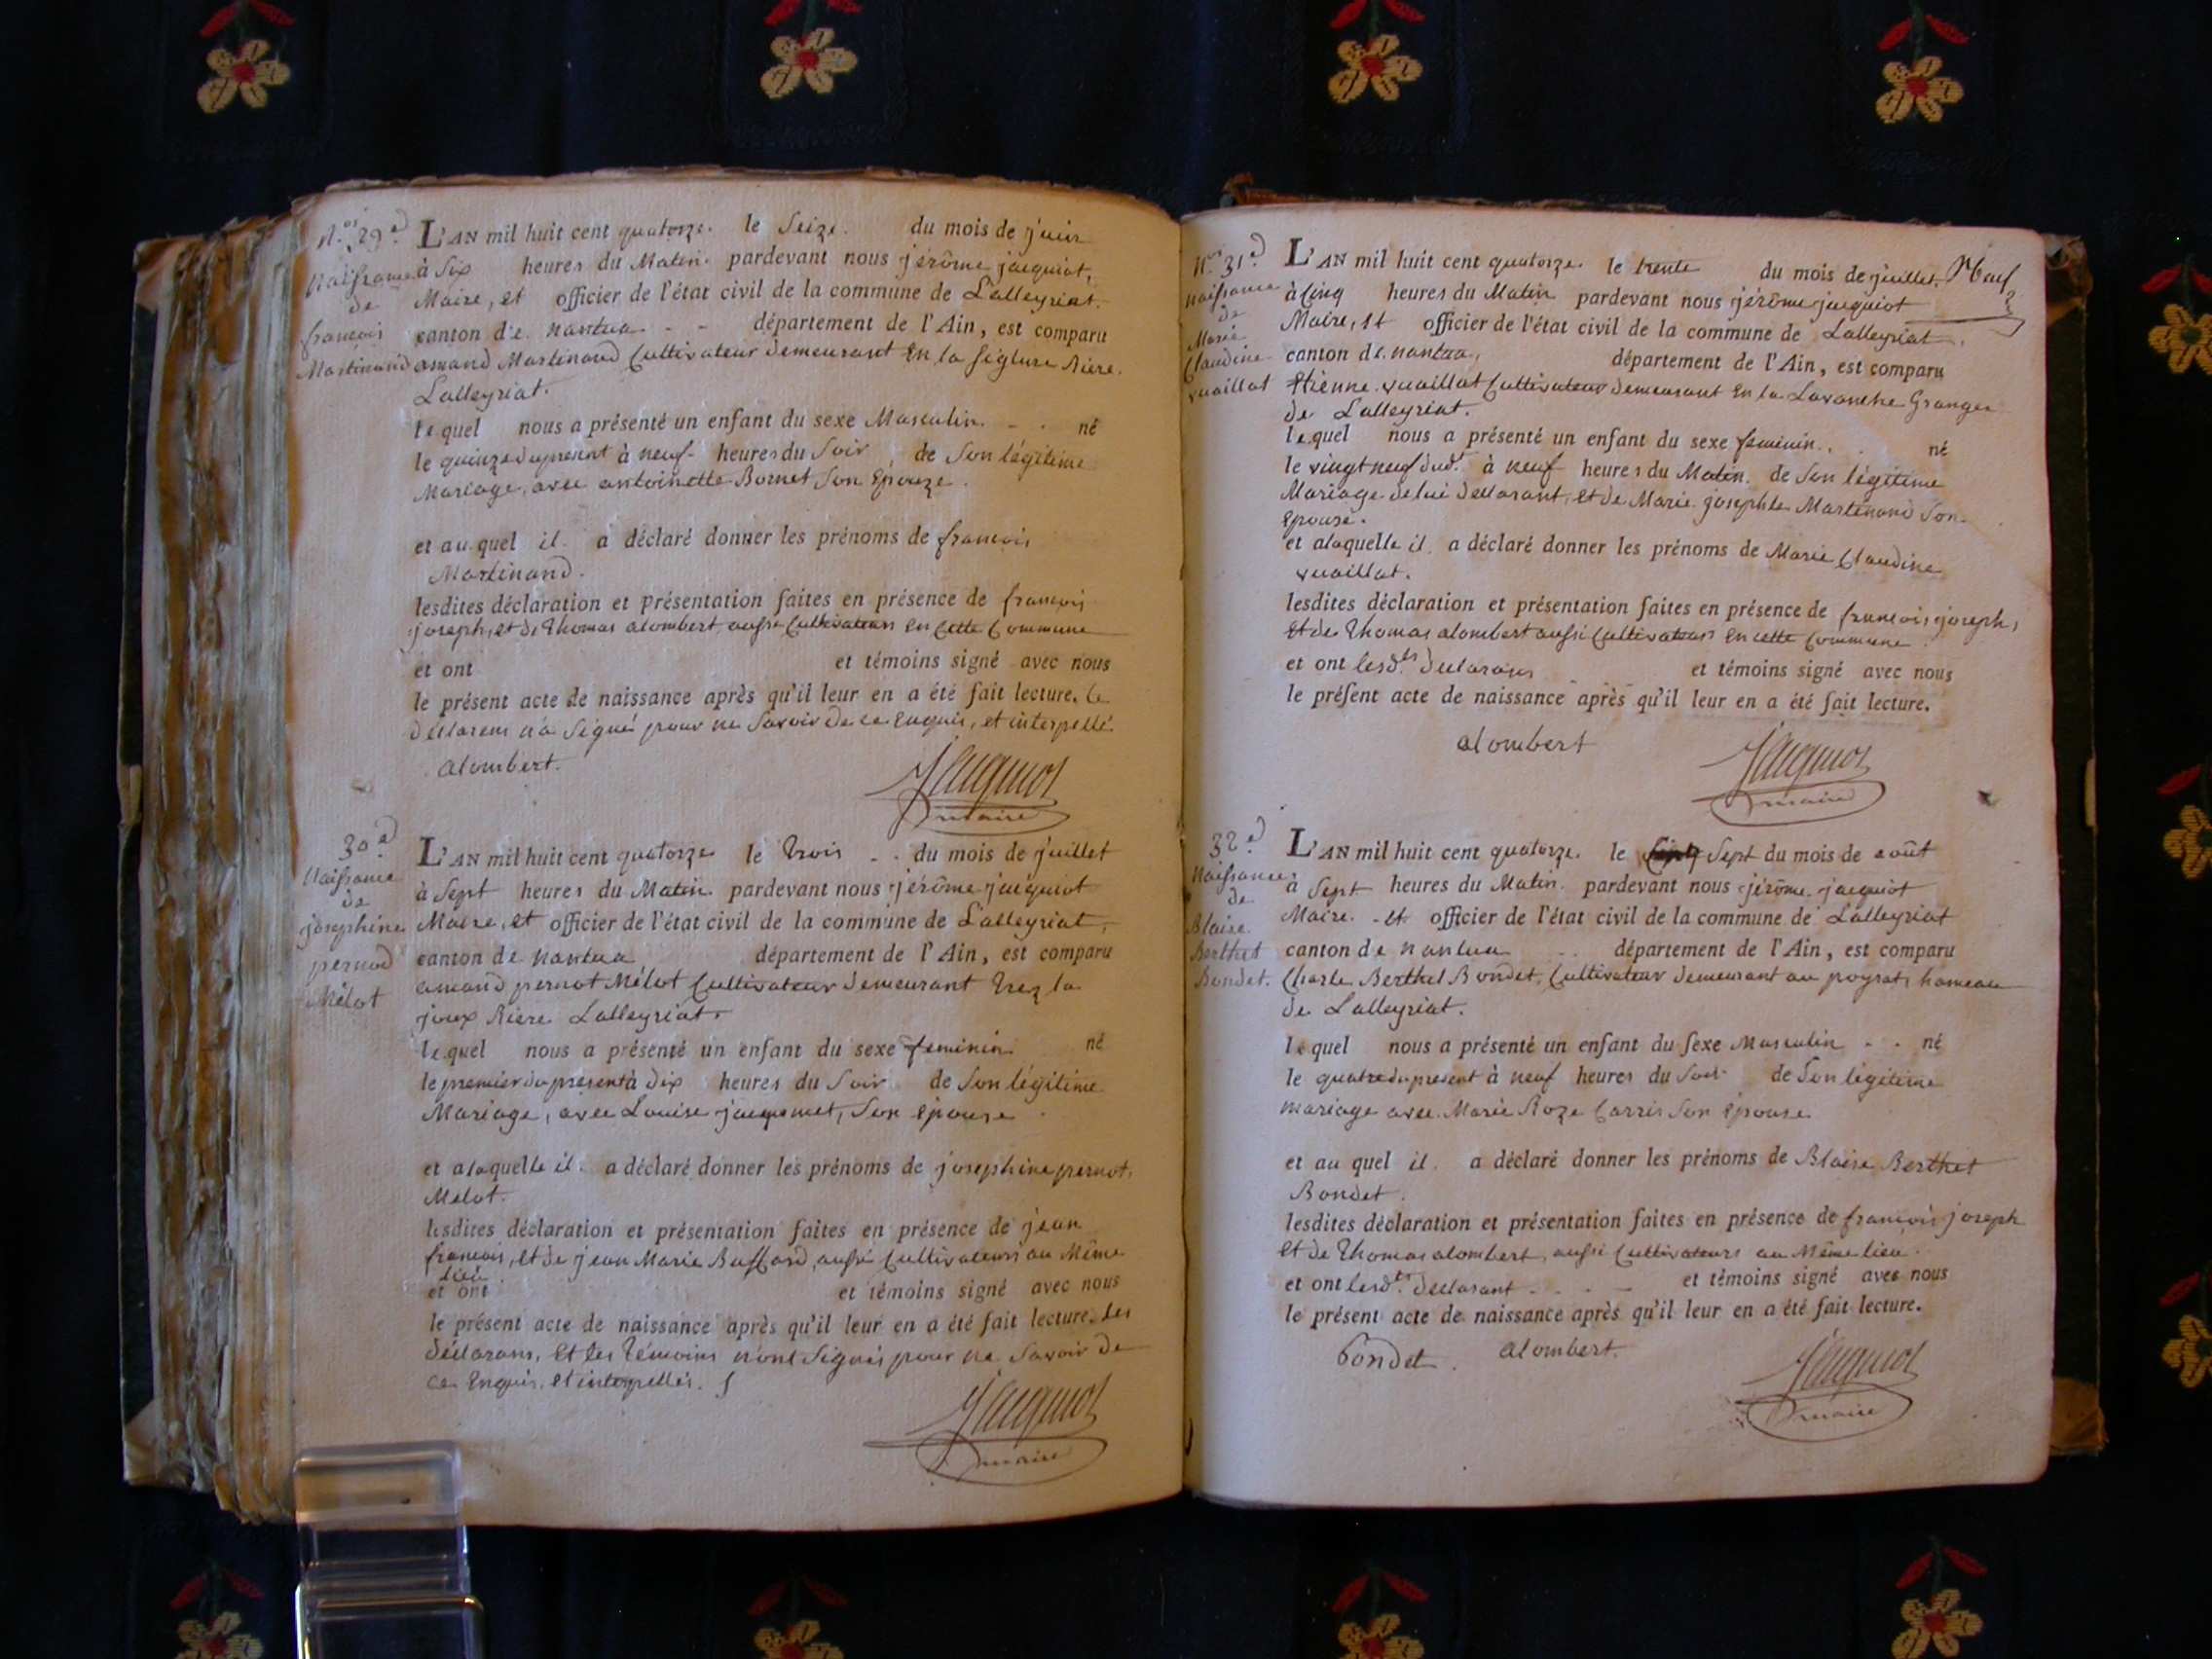 N.os 29e.
Naissance
de
francois
Martinand
L'AN mil huit cent quatorze. le Seize. du mois de juin
à Six heures du Matin. pardevant nous jérôme jacquiot,
Maire, et officier de l'état civil de la commune de Lalleyriat.
canton de nantua - - département de l'Ain, est comparu
amand Martinand Cultivateur demeurant En la Séglure Riere
Lalleyriat.
lequel nous a présenté un enfant du sexe Masculin - - né
le quinze du present à neuf heures du Soir, de Son légitime
Mariage, avec antoinette Bornet Son Epouze.
et au quel il a déclaré donner les prénoms de francois
Martinand.
lesdites déclaration et présentation faites en présence de francois
joseph, et de Thomas alombert, aussi Cultivateurs En Cette Commune
et ont et témoins signé avec nous
le présent acte de naissance après qu'il leur en a été fait lecture. le
déclarent n'a Signé pour ne Savoir de ce Enquis, et interpellé
alombert.
Jacquiot
maire
30e.
Naissance
de
josephine
pernod
Mélot
L'AN mil huit cent quatorze le Trois - - du mois de juillet
à Sept heures du Matin pardevant nous jérôme jacquiot
Maire, et officier de l'état civil de la commune de Lalleyriat,
canton de nantua département de l'Ain, est comparu
amand pernot Mélot Cultivateur demeurant Trez la
joux Riere Lalleyriat.
lequel nous a présenté un enfant du sexe feminin né
le premier du present à Dix heures du Soir de Son légitime
Mariage, avec Louise jacquemet, Son épouse
et a laquelle il a déclaré donner les prénoms de josephine pernot
Melot.
lesdites déclaration et présentation faites en présence de jean
francois, et de jean Marie Buffard, aussi Cultivateurs au Même
lieu.
et ont et témoins signé avec nous
le présent acte de naissance après qu'il leur en a été fait lecture. les
déclarans, et les Témoins n'ont Signés pour ne Savoir de
ce Enquis, et interpellés.
Jacquiot
maire
N.os 31e.
Naissance
de
Marie
Claudine
vuaillat
L'AN mil huit cent quatorze. le trente du mois de juillet.
Neuf
à Cinq heures du Matin pardevant nous jérôme jacquiot
Maire, et officier de l'état civil de la commune de Lalleyriat,
canton de nantua, département de l'Ain, est comparu
Etienne vuaillat Cultivateur demeurant En la Lavanche Granger
de Lalleyriat.
lequel nous a présenté un enfant du sexe feminin. né
le vingt neuf dud.t à neuf heures du Matin. de Son légitime
Mariage de lui déclarant, et de Marie josephte Martinand Son
épouse.
et a laquelle il a déclaré donner les prénoms de Marie Claudine
vuaillat.
lesdites déclaration et présentation faites en présence de francois joseph,
et de Thomas alombert aussi Cultivateurs En cette Commune
et ont lesd.ts déclarans et témoins signé avec nous
le présent acte de naissance après qu'il leur en a été fait lecture.
alombert
Jacquiot
maire
32e.
Naissance
de
Blaise
Berthet
Bondet.
L'AN mil huit cent quatorze. le Sept du mois de août
à Sept heures du Matin. pardevant nous jérôme jacquiot
Maire. et officier de l'état civil de la commune de Lalleyriat
canton de nantua - - département de l'Ain, est comparu
Charle Berthet Bondet, Cultivateur demeurant au poyzat, hameau
de Lalleyriat.
lequel nous a présenté un enfant du sexe Masculin - - né
le quatre du present à neuf heures du Soir de Son légitime
mariage avec Marie Roze Carris Son épouse
et au quel il a déclaré donner les prénoms de Blaise Berthet
Bondet.
lesdites déclaration et présentation faites en présence de francois joseph
et de Thomas alombert, aussi Cultivateurs au Même lieu.
et ont lesd.ts déclarant - - - - et témoins signé avec nous
le présent acte de naissance après qu'il leur en a été fait lecture.
Bondet. alombert.
Jacquiot
maire